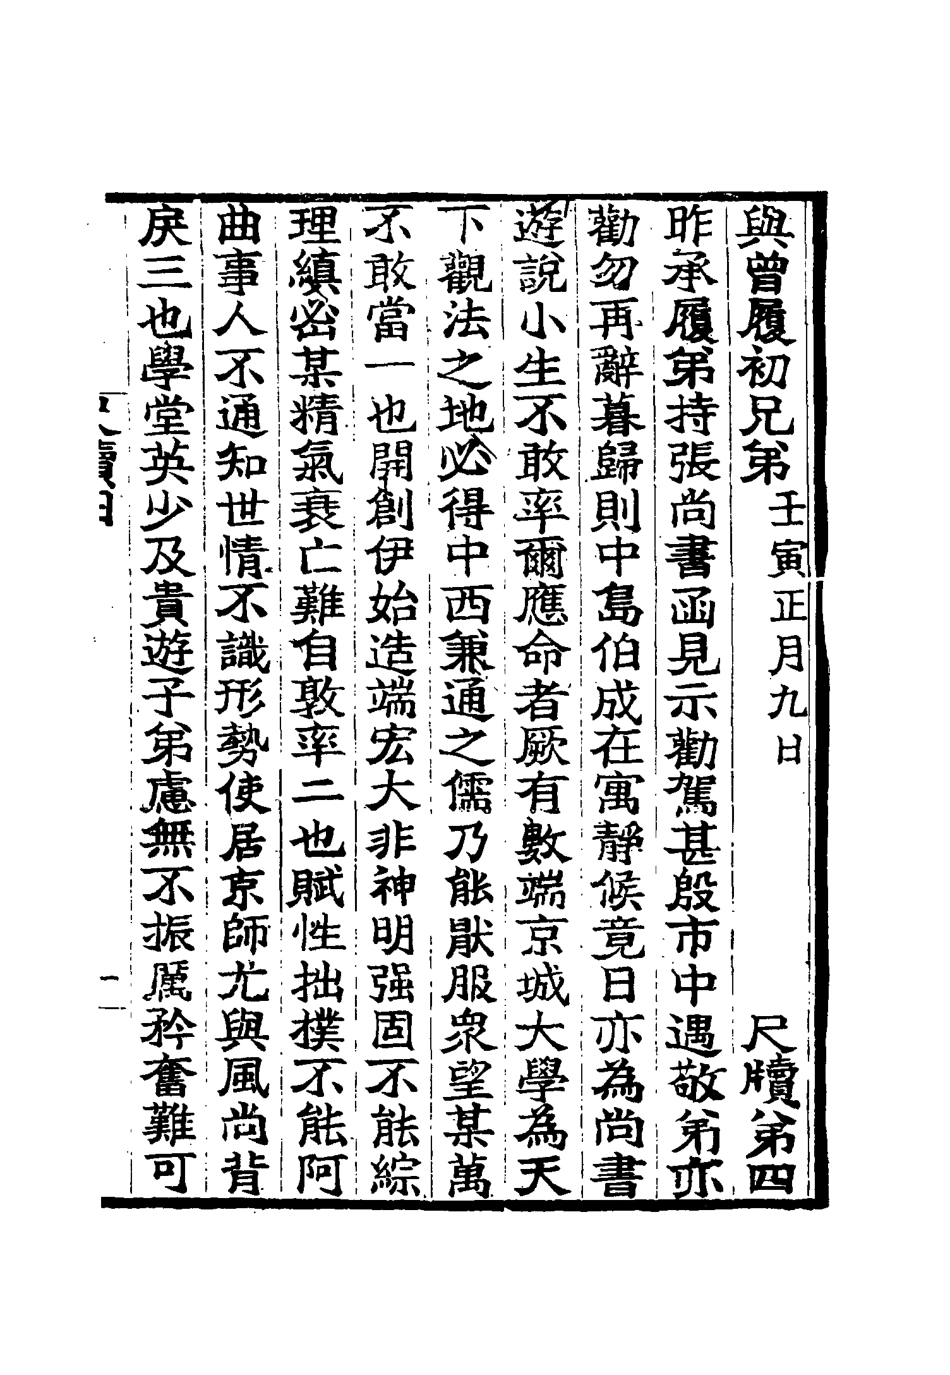 與曾履初兄弟 壬寅正月九日 尺牘第四
昨承履弟持張尚書函見示勸駕甚殷市中遇敬弟亦
勸勿再辭暮歸則中島伯成在寓靜候竟日亦為尚書
遊說小生不敢率爾應命者厥有數端京城大學為天
下觀法之地必得中西兼通之儒乃能猒服衆望某萬
不敢當一也開創伊始造端宏大非神明强固不能綜
理縝密某精氣衰亡難自敦率二也賦性拙撲不能阿
曲事人不通知世情不識形勢使居京師尤與風尚背
戾三也學堂英少及貴遊子弟慮無不振厲矜奮難可
尺牘四
一